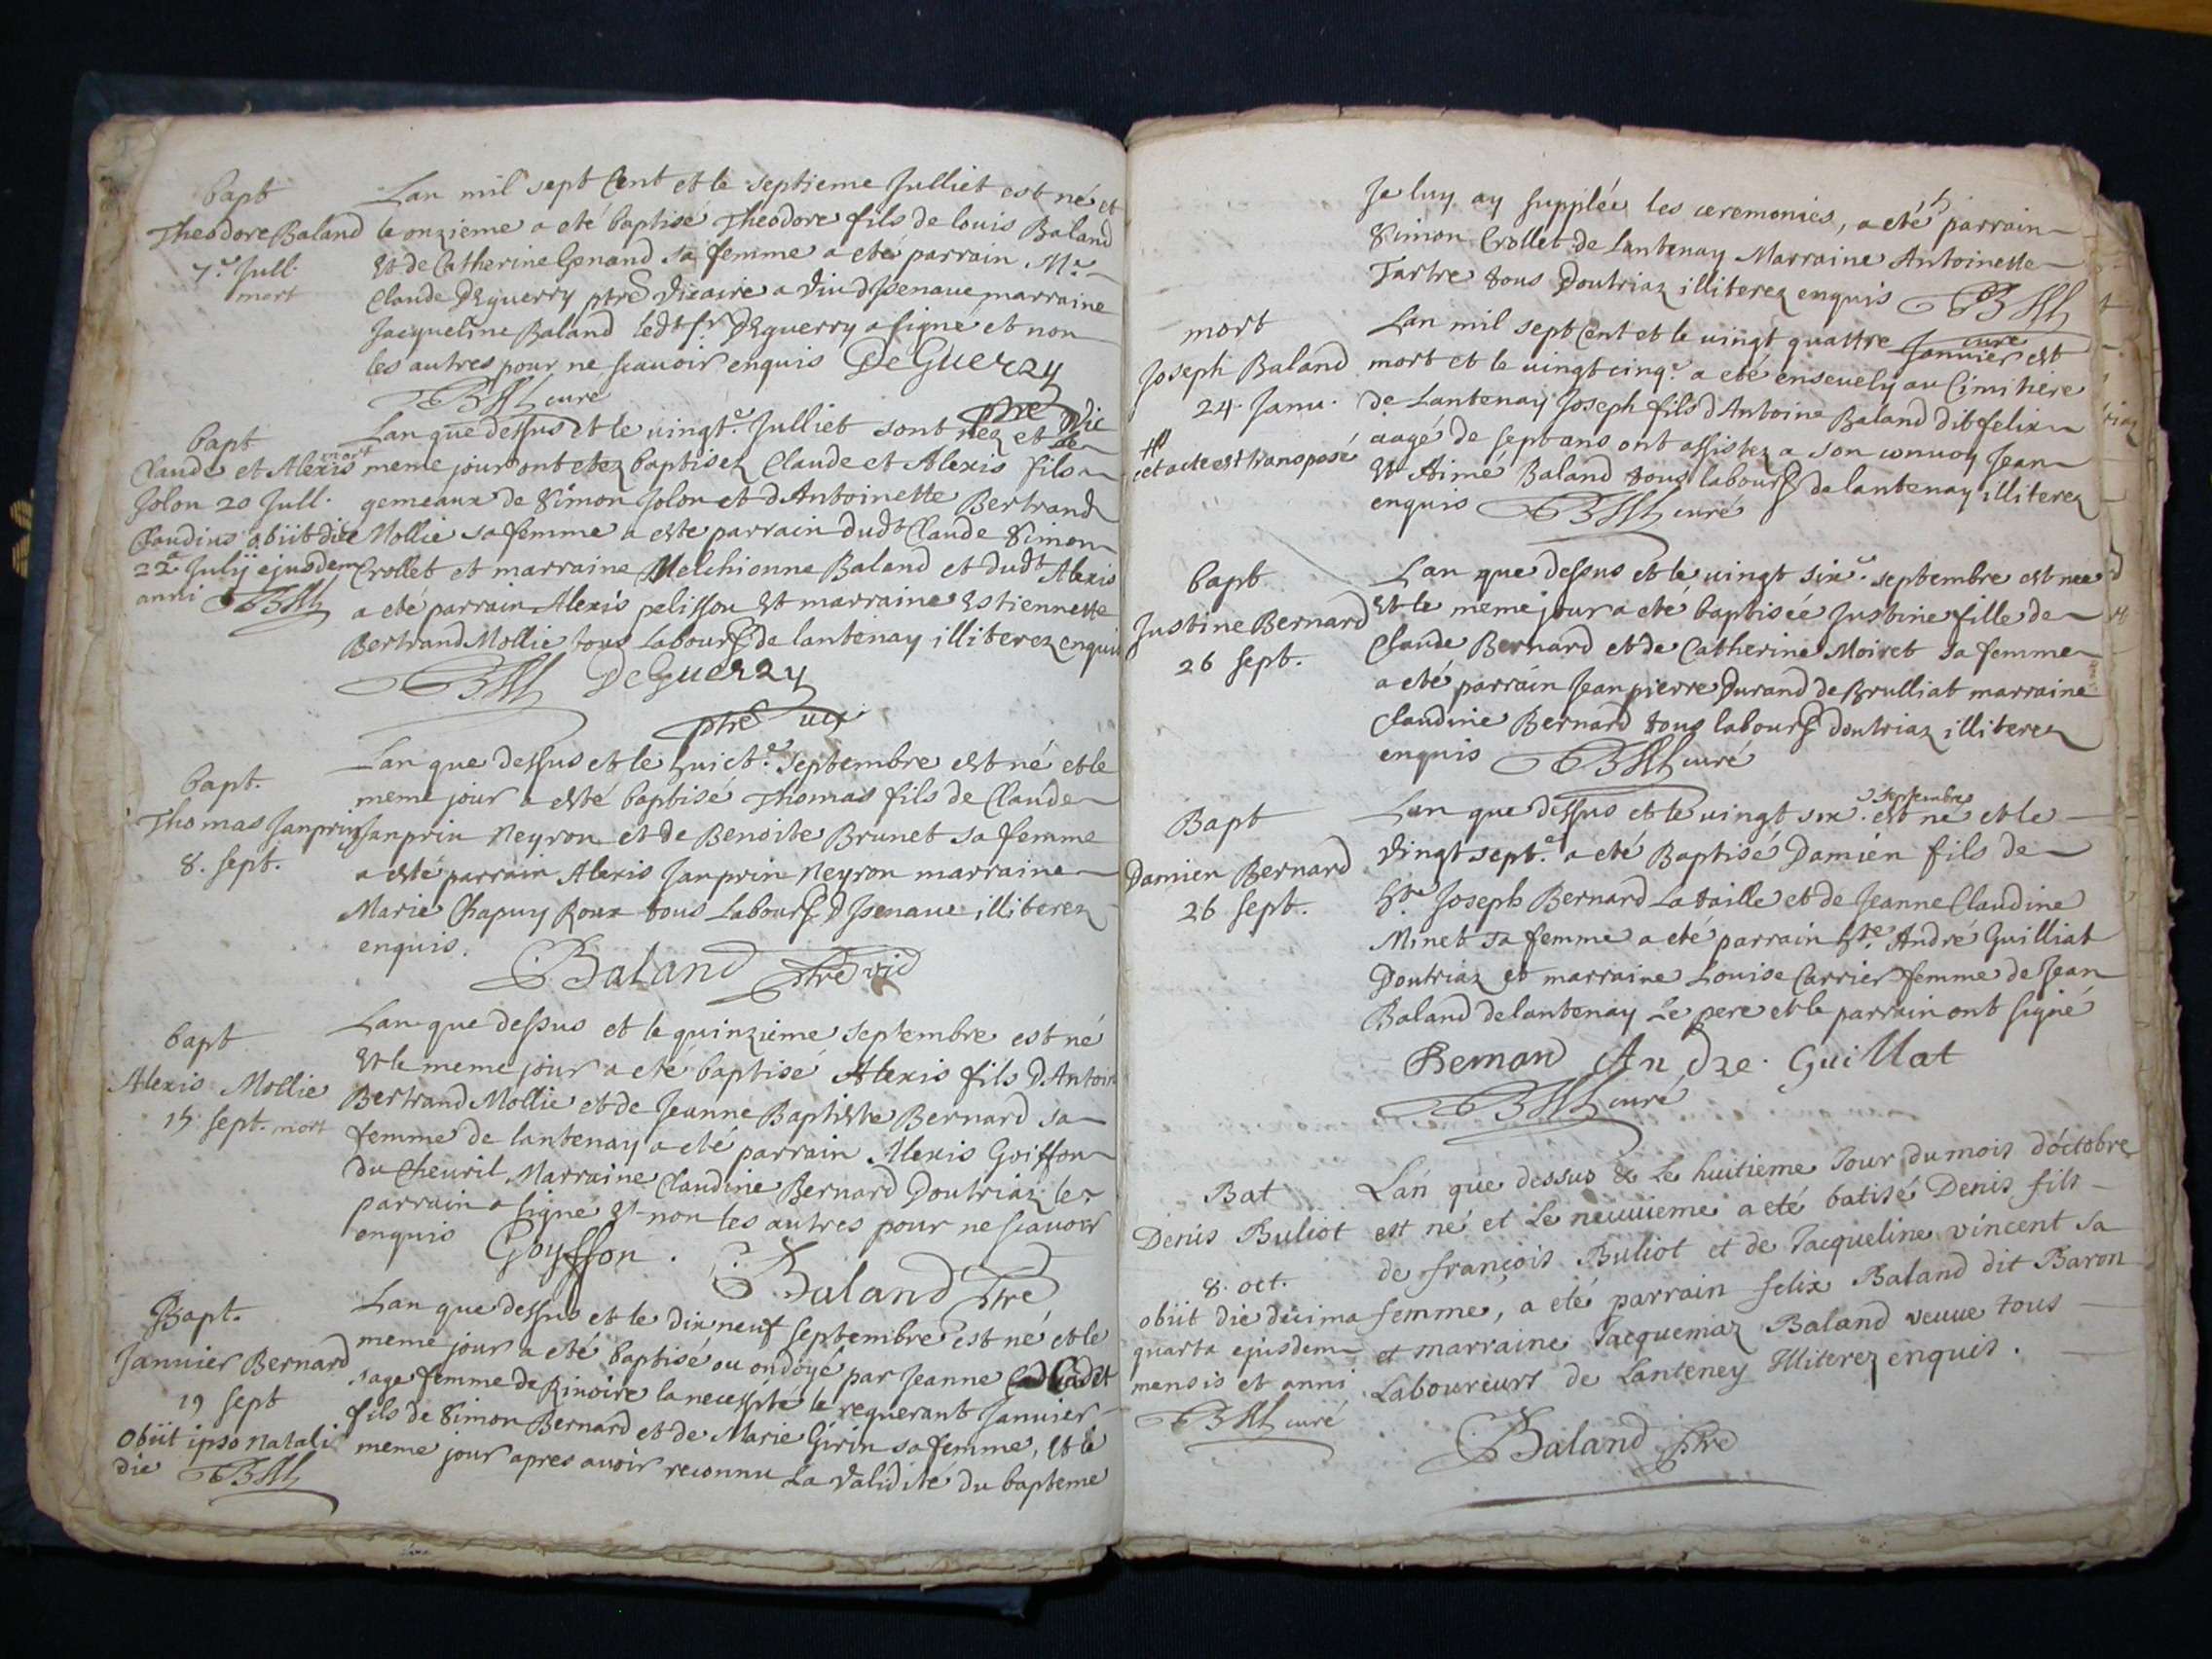 bapt
Theodore Baland
7.e Jull.
mort
Lan mil sept Cent et le septieme Julliet est né et
le onzieme a eté baptisé Theodore fils de louis Baland
Et de Catherine Genand sa femme a eté parrain Mre
Claude DEguerry ptre vicaire a viu dIsenaue marraine
Jacqueline Baland led.t s.r DEguerry a signé et non
les autres pour ne scauoir enquis DeGuerry
curé ptre vic
bapt
Claude et Alexis mort
Jolon 20 Jull.
Claudius obiit die
22a Julij ejusdem
anni
Lan que dessus et le uingt.e Julliet sont nez et le
meme jour ont etez baptisez Claude et Alexis fils
gemeaux de Simon Jolon et dAntoinette Bertrand
Mollie sa femme a este parrain dudt Claude Simon
Crollet et marraine Melchionne Baland et dudt Alexis
a eté parrain Alexis pelisson Et marraine Estiennette
Bertrand Mollie tous Labours de lantenay illiterez enquis
DeGuerry
ptre uic
bapt.
Thomas Janprin
8. sept.
Lan que dessus et le huict.e Septembre est né et le
meme jour a esté baptisé Thomas fils de Claude
Janprin Neyron et de Benoite Brunet sa femme
a esté parrain Alexis Janprin Neyron marraine
Marie Chapuy Roux tous Labours dIsenaue illiterez
enquis.
Baland ptre vic
bapt
Alexis Mollie
15. sept. mort
Lan que dessus et le quinzieme septembre est né
Et le meme jour a eté baptisé Alexis fils DAntoin
Bertrand Mollie et de Jeanne Baptiste Bernard sa
femme de lantenay a eté parrain Alexis Goiffon
du Cheuril Marraine Claudine Bernard Doutriaz le
parrain a signé Et non les autres pour ne scauoir
enquis Goyffon.
Baland ptre
Bapt.
Januier Bernard
19 sept
Obiit ipso natali
die
Lan que dessus et le dix neuf septembre est né et le
meme jour a eté baptisé ou ondoyé par Jeanne Cadet
sage femme de Rinoire la necessité le requerant Januier
fils de Simon Bernard et de Marie Girin sa femme, Et le
meme jour apres auoir reconnu La validité du bapteme
Je luy ay supplée les ceremonies, a eté parrain
Simon Crollet de Lantenay Marraine Antoinette
Tartre tous Doutriaz illiterez enquis
curé
mort
Joseph Baland
24. Janu.
cet acte est transposé
Lan mil sept Cent et le uingt quattre Januier est
mort et le uingt cinq.e a eté enseuely au Cimitiere
de Lantenay Joseph fils dAntoine Baland dit felix
aagé de sept ans ont assistez a son conuoy Jean
Et Aimé Baland tous labours de lantenay illiterez
enquis curé
bapt
Justine Bernard
26 sept.
Lan que dessus et le uingt six.e septembre est née
Et le meme jour a eté baptisée Justine fille de
Claude Bernard et de Catherine Moiret sa femme
a eté parrain Jean pierre Durand de Brulliat marraine
Claudine Bernard tous labours doutriaz illiterez
enquis curé
Bapt
Damien Bernard
26 sept.
Lan que dessus et le uingt six.e septembre est né et le
vingt sept.e a eté Baptisé Damien fils de
Joseph Bernard La taille et de Jeanne Claudine
Minet sa femme a eté parrain André Guilliat
Doutriaz et marraine Louise Carrier femme de Jean
Baland de lantenay Le pere et le parrain ont signé
Bernard Andre. Guillat
curé
Bat
Denis Buliot
8. oct.
obiit die decima
quarta ejusdem
mensis et anni
curé
L'an que dessus & Le huitieme Jour du mois d'octobre
est né et Le neuuieme a eté batisé Denis fils
de françois Buliot et de Jacqueline vincent sa
femme, a eté parrain felix Baland dit Baron
et marraine Jacquemaz Baland veuue tous
Laboureurs de Lanteney Illiterez enquis.
Baland ptre